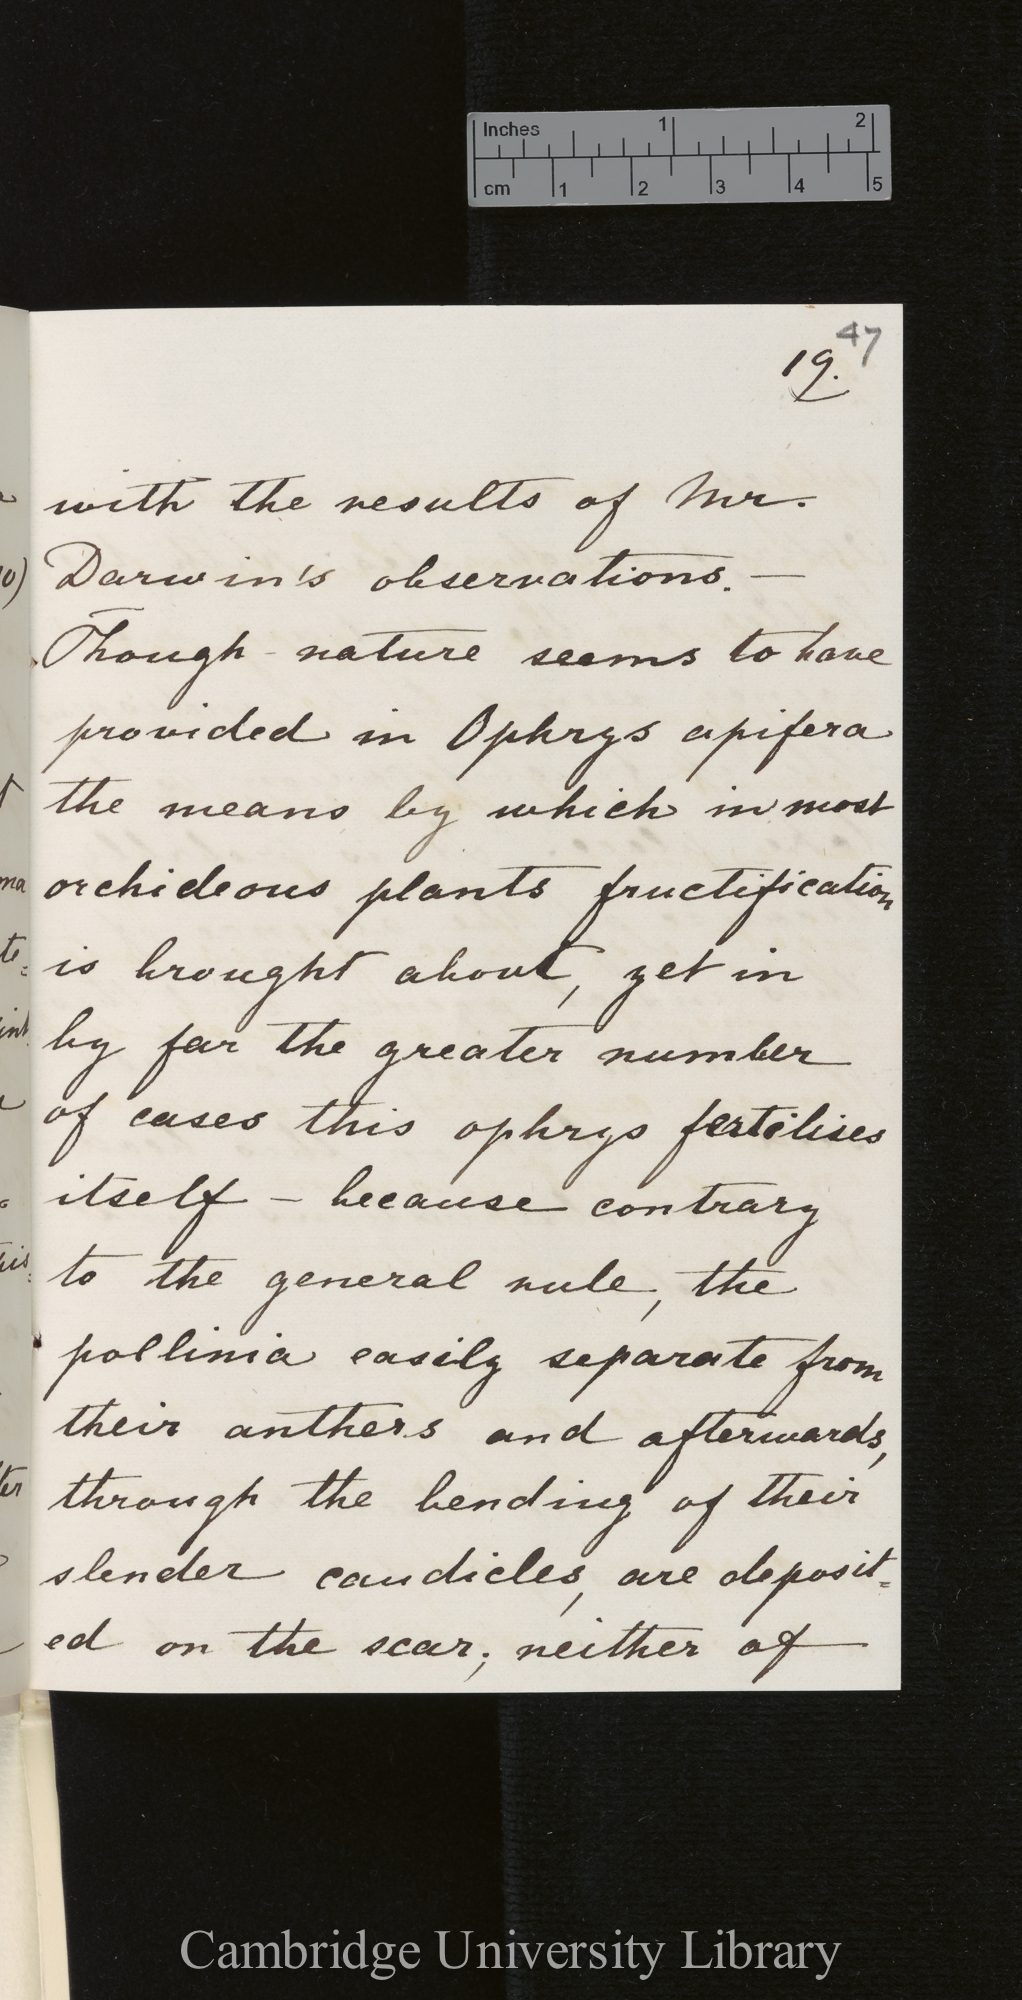 Inches 1 2
cm 1 2 3 4 5
47
19.
with the results of Mr.
Darwin's observations. —
Though nature seems to have
provided in Ophrys apifera
the means by which in most
orchideous plants fructification
is brought about, yet in
by far the greater number
of cases this ophrys fertilises
itself – because contrary
to the general rule, the
pollinia easily separate from
their anthers and afterwards,
through the bending of their
slender caudicles, are deposit=
ed on the scar; neither of
Cambridge University Library